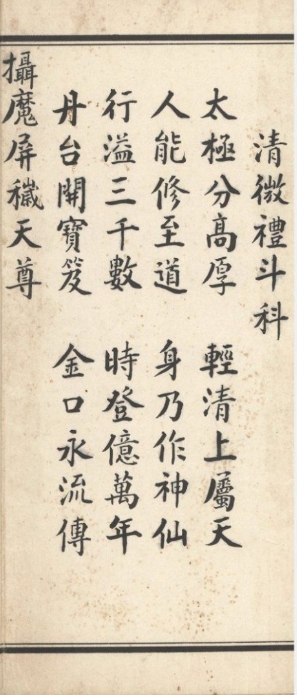 清微禮斗科
太極分高厚 輕清上屬天
人能修至道 身乃作神仙
行溢三千數 時登億萬年
丹台開寶笈 金口永流傳
攝魔屏穢天尊